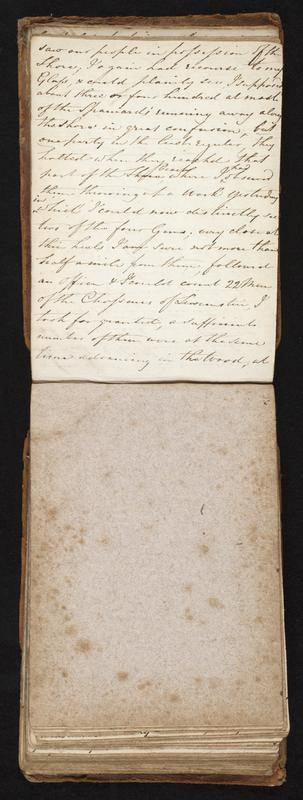 saw our people in possession of the
Shore, I again had recourse to my
Glass & could plainly see I suppose
about three or four hundred at most
of the Spaniards running away along
the Shore in great confusion, but
one party in the rear regular, They
halted when they reached that
part of the where I observed
them throwing up a Work yesterday
in which I could now distinctly see
two of the four Guns. very close at
their heels I am sure not more than
half a mile from them, followed
an officer & I could count 22 Men
of the Chasseurs of I
took for granted, a sufficient
number of them were at the same
time advancing in the Wood, at